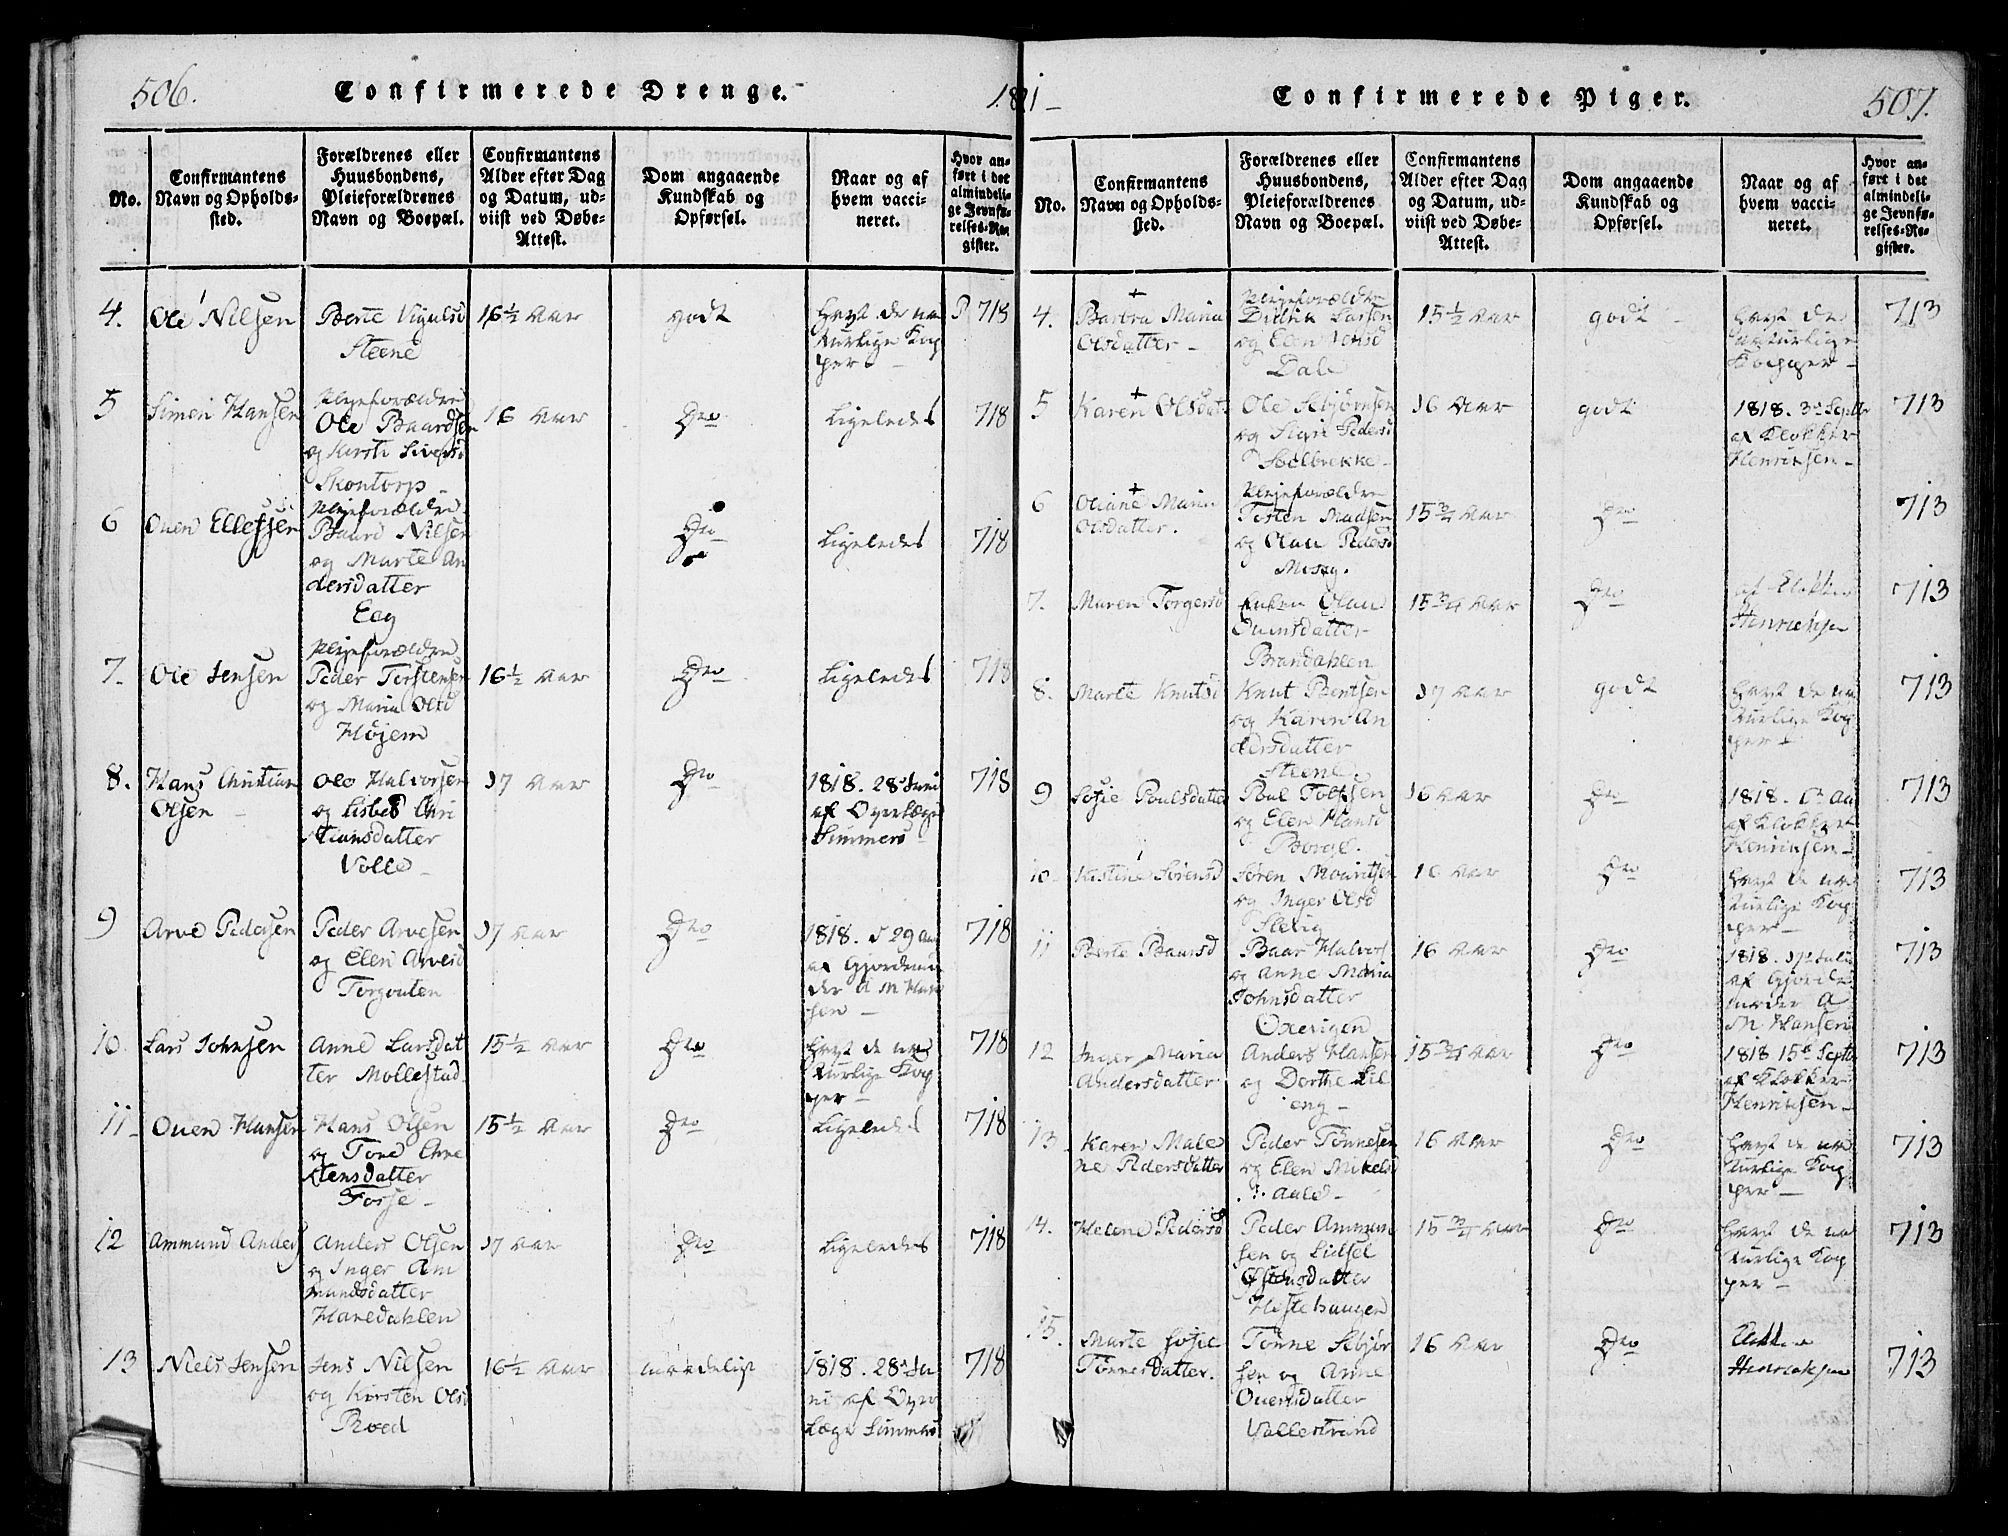 506.
Confirmerede Drenge.
1821-
Confirmerede Piger.
507.
No.
Confirmantens
Navn og Opholds-
sted.
Forældrenes eller
Huusbondens,
Pleieforældrenes
Navn og Boepæl.
Confirmantens
Alder efter Dag
og Datum, ud-
viist ved Døbe-
Attest.
Dom angaaende
Kundskab og
Opførsel.
Naar og af
hvem vacci-
neret.
Hvor an-
ført i det
almindeli-
ge Jevnfø-
relses-Re-
gister.
4. Ole Nilsen
Berte Vigulsd
Steene
16½ Aar
godt
havt de na
turlige Kop
per
P 718
5 Simen Hansen
Plejeforældre
Ole Baardsen
og Kirsti Siversd
Skontorp
16 Aar
Do
Ligeledes
718
6 Ouen Ellefsen
Plejeforældre
Baard Nilsen
og Marte An
dersdatter
Eeg
Do
Ligeledes
718
7. Ole Jensen
Plejeforældre
Peder Torstensen
og Maria Olsd
Højem
16½ Aar
Do
Ligeledes
718
8. Hans Christian
Olsen
Ole Halvorsen
og Lisbed Chri
stiansdatter
Volle
17 Aar
Do
1818. 28 Juni
af Overlæge
Simmers
718
9 Arve Pedersen
Peder Arvesen
og Elen Arvesd
Torgouten
17 Aar
Do
1818. d 29 Au
af Gjordemo
der A M Han
sen
718
10. Lars Johnsen
Anne Larsdat
ter Mollestad
15½ Aar
Do
havt de na
turlige Kop
per
718
11 Ouen Hansen
Hans Olsen
og Tone Chre
stensdatter
Forse
15½ Aar
Do
Ligeledes
718
12 Ammund Anders
Anders Olsen
og Inger Am
mundsdatter
Hanedahlen
17 Aar
Do
Ligeledes
718
13 Niels Jensen
Jens Nilsen
og Kirsten Olsd
Roed
16½ Aar
maadeligt
1818. 28 Ju
ni af Over
Læge Simmers
718
No.
Confirmantens
Navn og Opholds-
sted.
Forældrenes eller
Huusbondens,
Pleieforældrenes
Navn og Boepæl.
Confirmantens
Alder efter Dag
og Datum, ud-
viist ved Døbe-
Attest.
Dom angaaende
Kundskab og
Opførsel.
Naar og af
hvem vacci-
neret.
Hvor an-
ført i det
almindeli-
ge Jevnfø-
relses-Re-
gister.
4. Barbra Maria
Olsdatter
Plejeforældre
Didrik Larsen
og Elen
Dale
15½ Aar
godt
havt de
naturlige
Kopper
713
5 Karen Olsdat
Ole Asbjørnsen
og Siri Pedersd
Solbrekke
16 Aar
godt
1818. 3 Septbr
af Klokker
Henriksen
713
6 Oliane Maria
Olsdatter.
Plejeforældre
Torsten Madsen
og Olau Pedersd
15¾ Aar
Do
713
7. Maren Torgersd
Enken Olau
Ouensdatter
Brandahlen
15¾ Aar
Do
af Klokker
Henriksen
713
8. Marte Knutsd
Knut Bentsen
og Karen An
dersdatter
Steene.
17 Aar
godt
havt de na
turlige Kop
per
713
9 Sofie Poulsdatter
Poul Tollefsen
og Elen Hansd
Borge.
16 Aar
Do
1818. Au
af Klokker
Henriksen
713
10 Kristine Sørensd
Søren Mouritsen
og Inger Olsd
16 Aar
Do
havt de na
turlige Kop
per
713
11 Berte Baarsd
Baar Halvors
og Anne Maria
Johnsdatter
Oxevigen
16 Aar
Do
1818. 17 Juli
af Gjorde
moder A
M Hansen
713
12 Inger Maria
Andersdatter
Anders Hansen
og Dorthe Lil
eng
15¾ Aar
Do
1818 15 Septbr
af Klokker
Henriksen
713
13 Karen Male
ne Pedersdatter
Peder Tønnesen
og Elen Mikelsd
Aale
16 Aar
Do
havt de na
turlige Kop
per
713
14. Helene Pedersd
Peder Ammun
sen og Lidsel
Østensdatter
Hestehaugen
15¾ Aar
Do
havt de na
turlige Kop
per
713
15. Marte Sofie
Tønnesdatter.
Tønne Asbjør
sen og Anne
Ouensdatter
Vallestrand
16 Aar
Do
Klokker
Henriksen
713